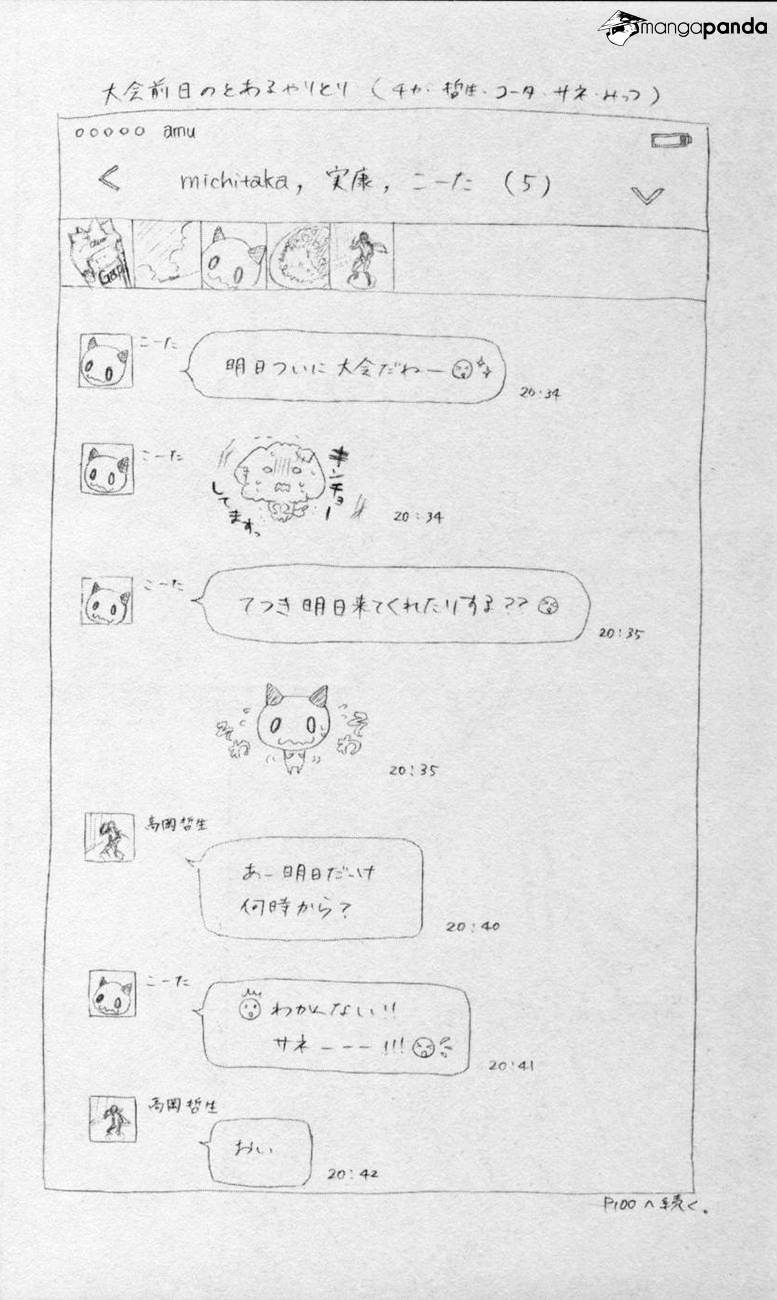 mangapanda
大会前日のとあるやりとり（チカ・哲生・コータ・サネ・みっつ）
○○○○○ amu
< michitaka, 実康, こーた (5)
Gap
こーた
明日ついに大会だねー
20:34
こーた
キンチョー
してますっ
20:34
こーた
てつき明日来てくれたりする??
20:35
そわ
そわ
20:35
高岡哲生
あー明日だーけ
何時から?
20:40
こーた
わかんない!!
サネーーー!!!
20:41
高岡哲生
おい
20:42
P100へ続く。